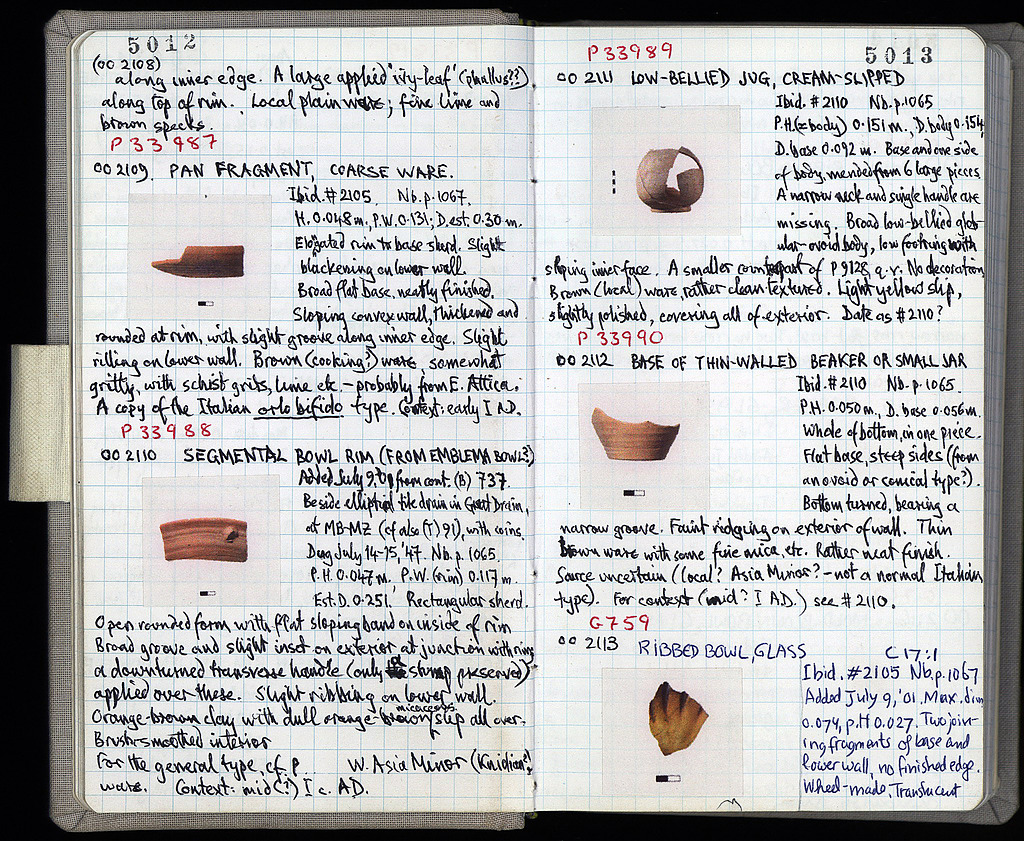 5012
(OO 2108)
along inner edge. A large applied "ivy-leaf" (phallus??)
along top of rim. Local plain ware; fine lime and
brown specks.
P 33987
OO 2109. PAN FRAGMENT, COARSE WARE.
Ibid. # 2105. Nb. p. 1067.
H. 0.048 m., P.W. 0.131; D. est. 0.30 m.
Elongated rim to base sherd. Slight
blackening on lower wall.
Broad flat base, neatly finished.
Sloping convex wall, thickened and
rounded at rim, with slight groove along inner edge. Slight
rilling on lower wall. Brown (cooking?) ware, somewhat
gritty, with schist grits, lime etc – probably from E. Attica.
A copy of the Italian orlo bifido type. Context: early I A.D.
P 33988
OO 2110 SEGMENTAL BOWL RIM (FROM EMBLEMA BOWL?)
Added July 9, from cont. (B) 737.
Beside elliptical tile drain in Great Drain,
at MB-MZ (cf also (T) 91), with coins.
Dug July 14-15, '47. Nb. p. 1065.
P.H. 0.047 m. P.W. (rim) 0.117 m.
Est. D. 0.251. Rectangular sherd.
Open rounded form with flat sloping band on inside of rim
Broad groove and slight inset on exterior at junction with rim
a downturned transverse handle (only stump preserved)
applied over these. Slight ribbing on lower wall.
Orange-brown clay with dull orange-brown micaceous slip all over.
Brush-smoothed interior
For the general type, cf. p W. Asia Minor (Knidian?)
ware. Context: mid (?) I c. A.D.
5013
P 33989
OO 2111 LOW-BELLIED JUG, CREAM-SLIPPED
Ibid. # 2110 Nb. p. 1065
P.H. (= body) 0.151 m., D. body 0.154,
D. base 0.092 m. Base and one side
of body, mended from 6 large pieces
A narrow neck and single handle are
missing. Broad low-bellied glob-
ular-ovoid body, low footring with
sloping inner face. A smaller counterpart of P 9128, q.v. No decoration
Brown (local) ware, rather clean textured. Light yellow slip,
slightly polished, covering all of exterior. Date as # 2110?
P 33990
OO 2112 BASE OF THIN-WALLED BEAKER OR SMALL JAR
Ibid. # 2110 Nb. p. 1065.
P.H. 0.050 m., D. base 0.056 m.
Whole of bottom, in one piece.
Flat base, steep sides (from
an ovoid or conical type?).
Bottom turned, bearing a
narrow groove. Faint ridging on exterior of wall. Thin
brown ware with some fine mica, etc. Rather neat finish.
Source uncertain (local? Asia Minor? – not a normal Italian
type). For context (mid? I A.D.) see # 2110.
G 759
OO 2113 RIBBED BOWL, GLASS C 17:1
Ibid. # 2105 Nb. p. 1067
Added July 9, '01. Max. dim
0.074, p.H 0.027. Two join-
ing fragments of base and
lower wall, no finished edge.
Wheel-made. Translucent